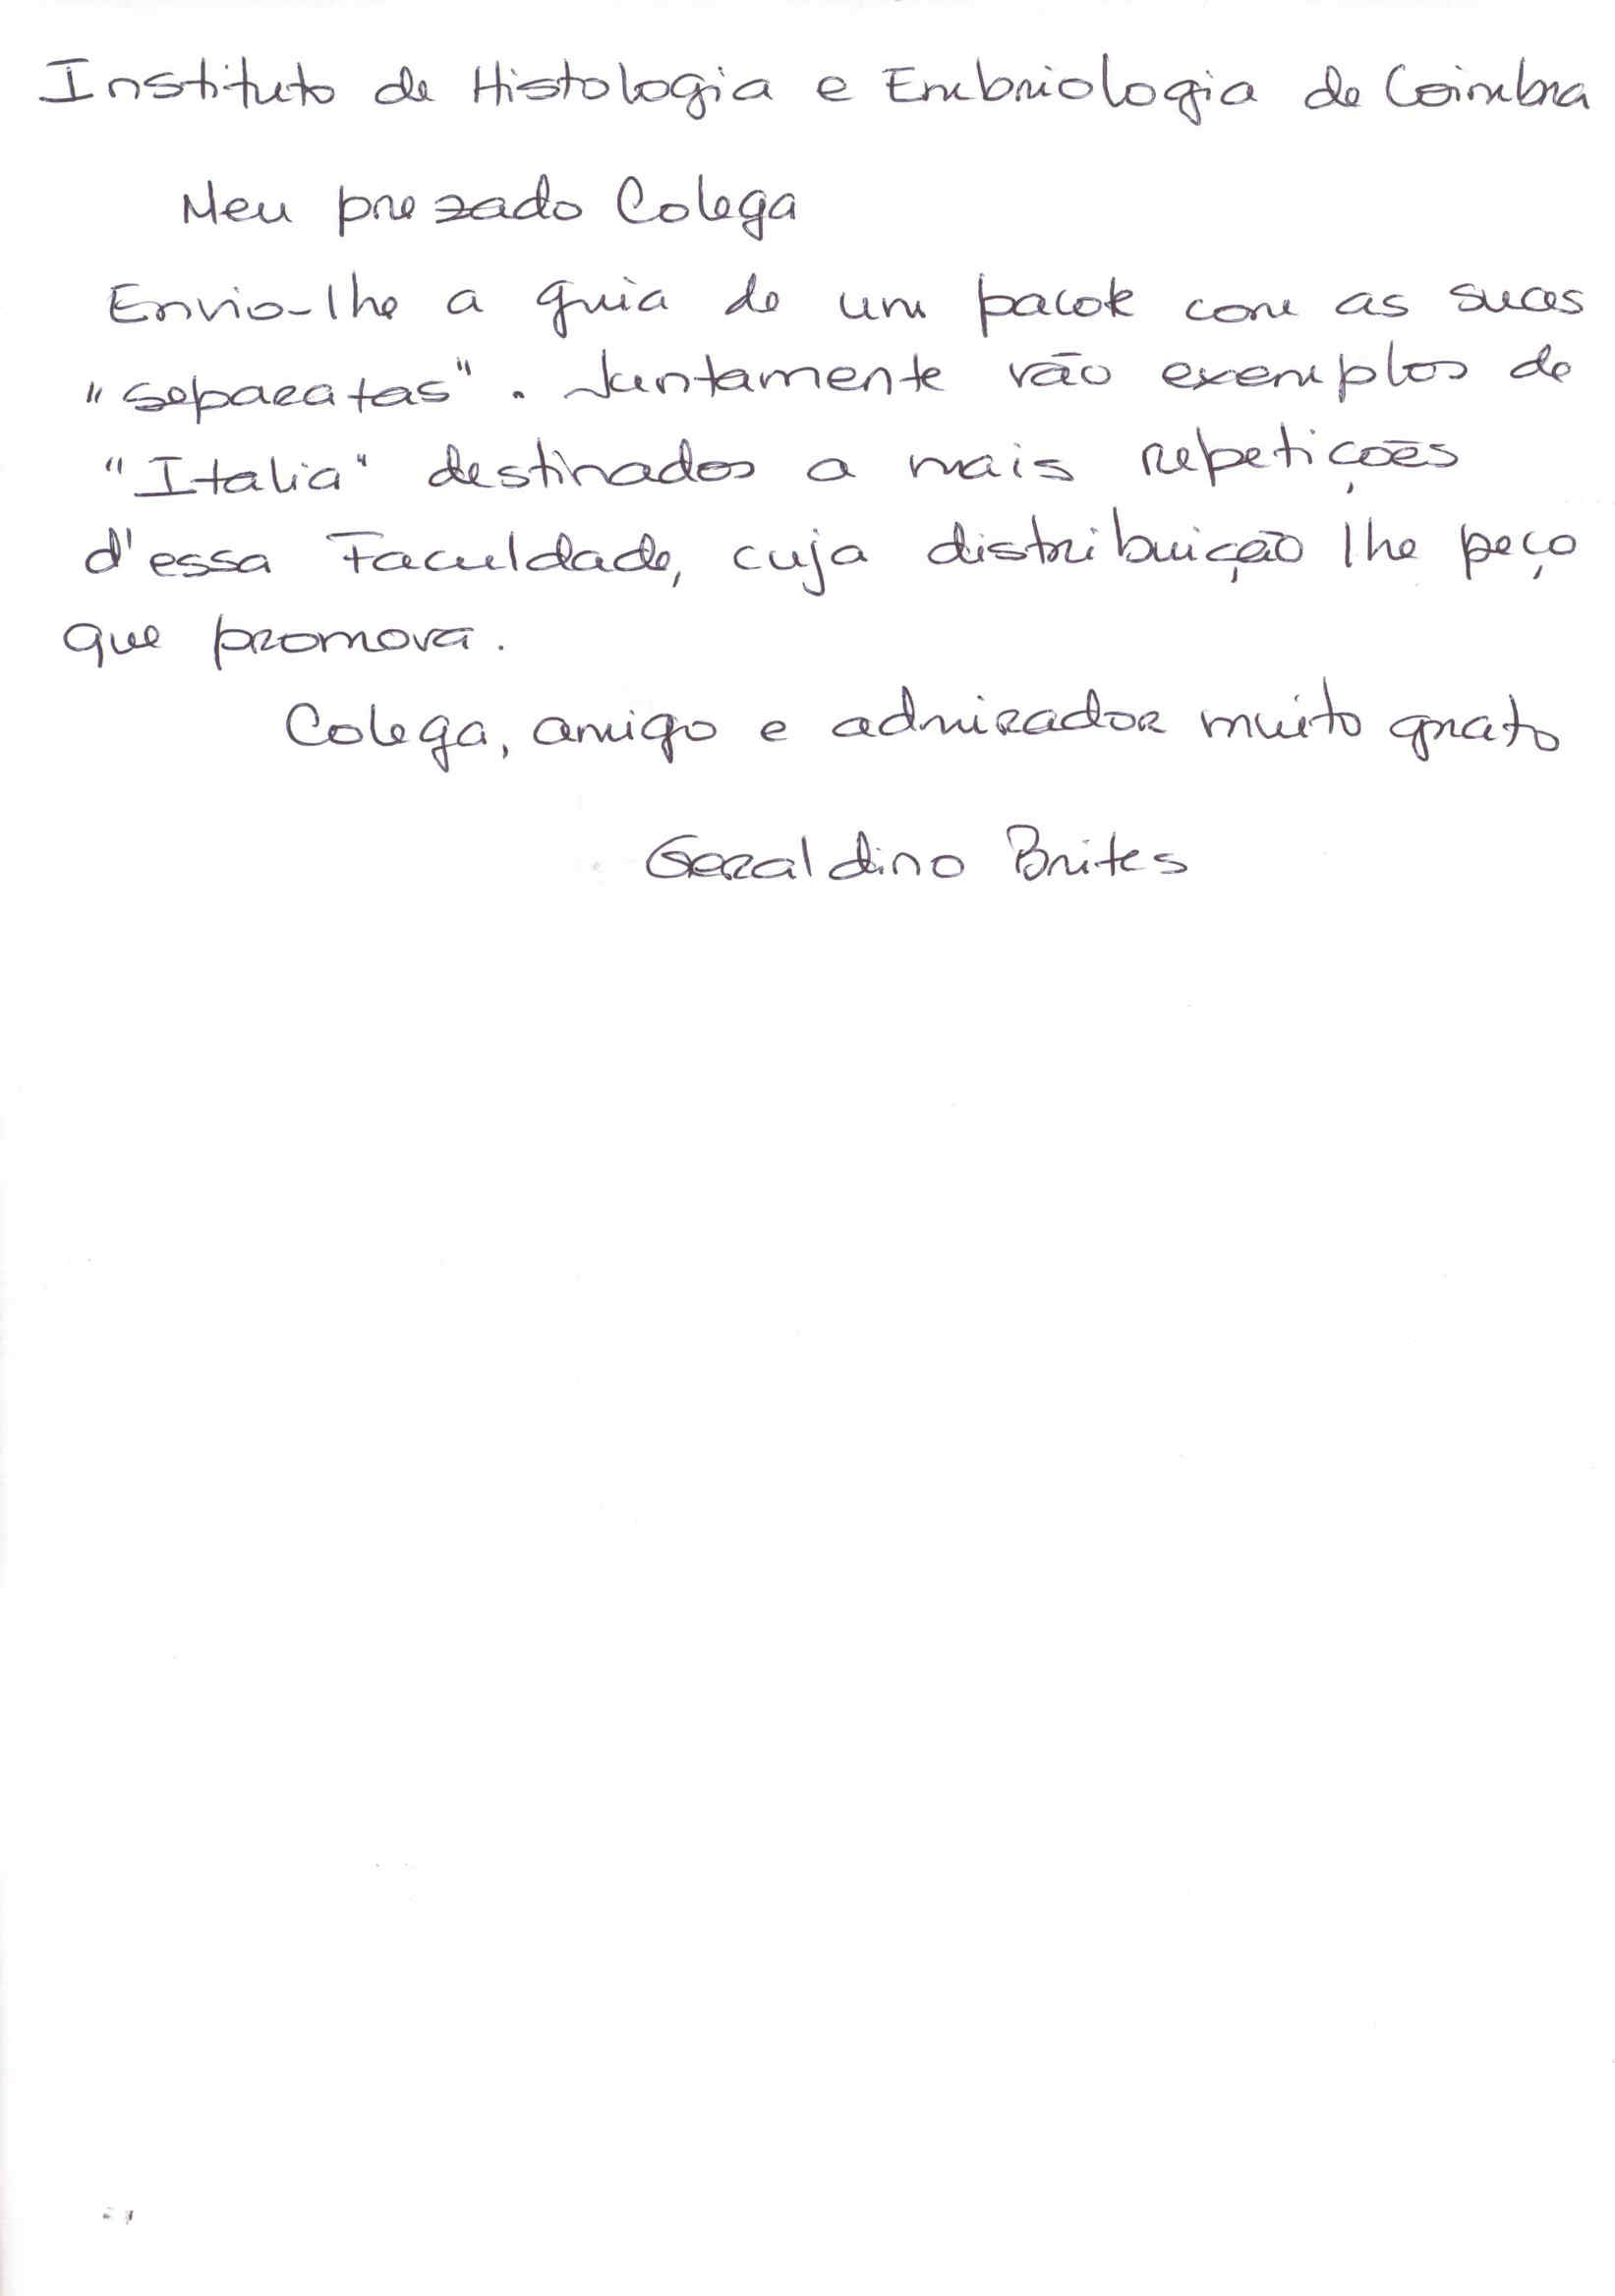 Instituto de Histologia e Embriologia de Coimbra
Meu prezado Colega
Envio-lhe a guia de um pacote com as suas
"separatas". Juntamente vão exemplos de
"Italia" destinados a mais repetições
d'essa Faculdade, cuja distribuição lhe peço
que promova.
Colega, amigo e admirador muito grato
Geraldino Brites